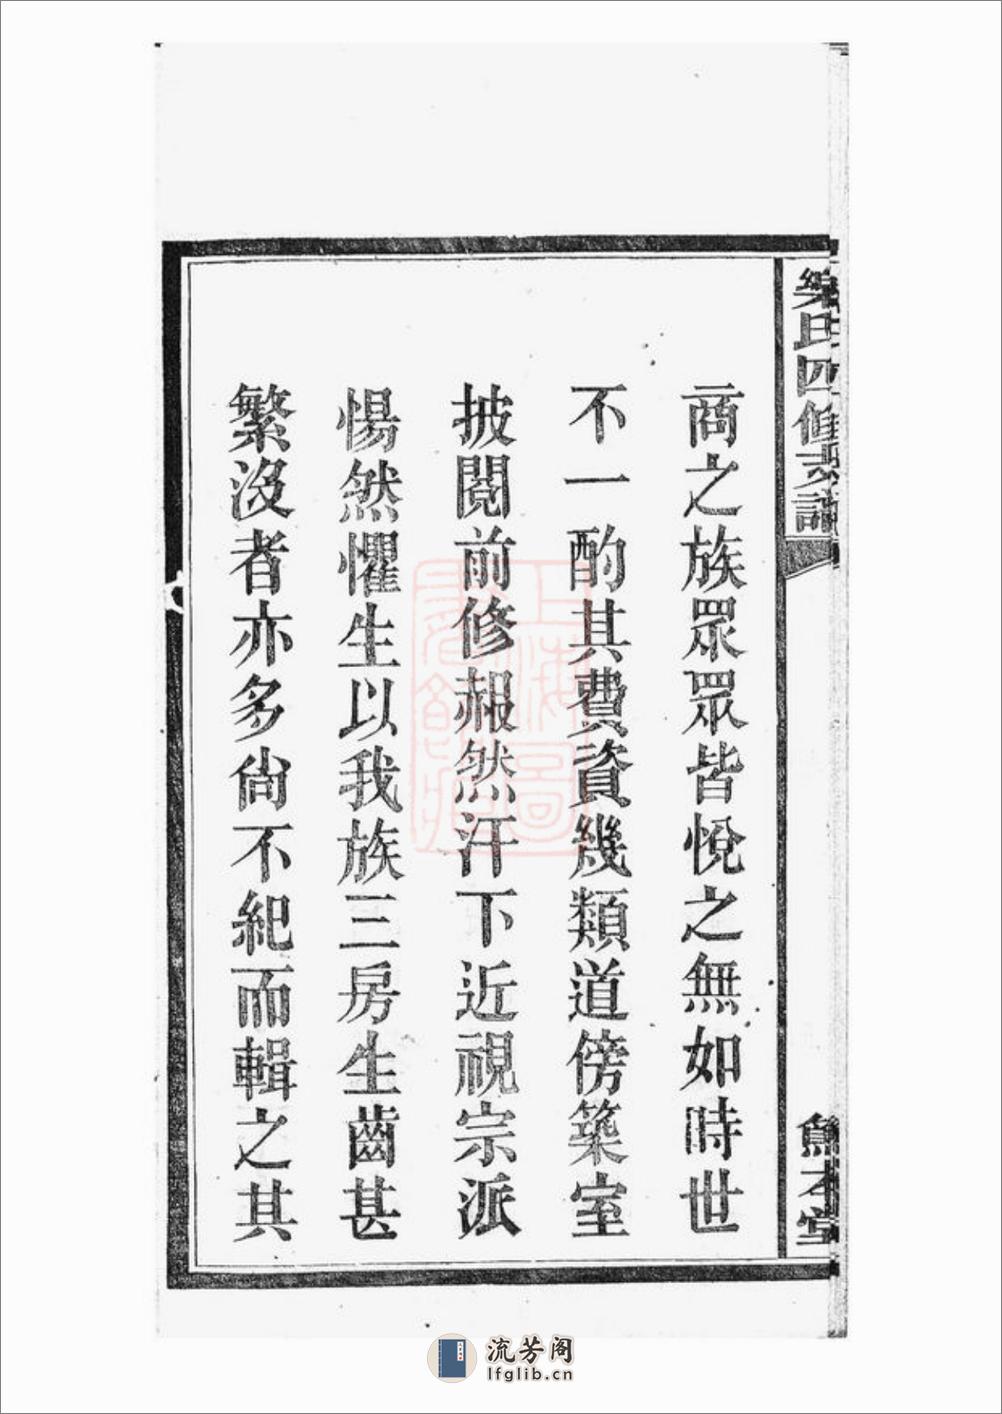 氏四修支譜
本堂
商之族眾眾皆悅之無如時世
不一酌其費資幾類道傍築室
披閱前修赧然汗下近視宗派
惕然懼生以我族三房生齒甚
繁沒者亦多尙不紀而輯之其
上海圖書館藏
流芳阁
lfglib.cn